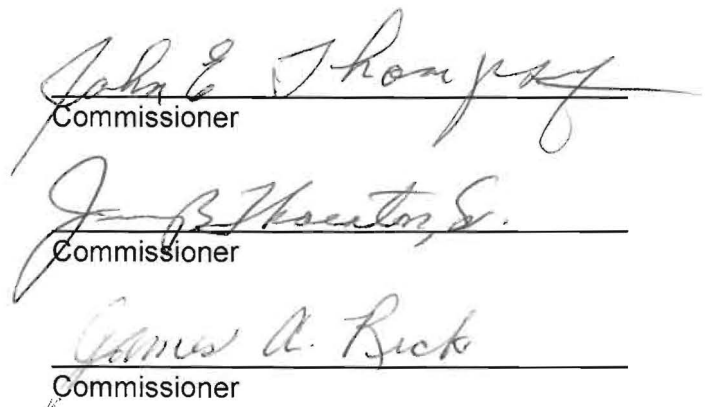 John E Thompson
Commissioner
B. Thornton, Sr.
Commissioner
James A. Rick
Commissioner